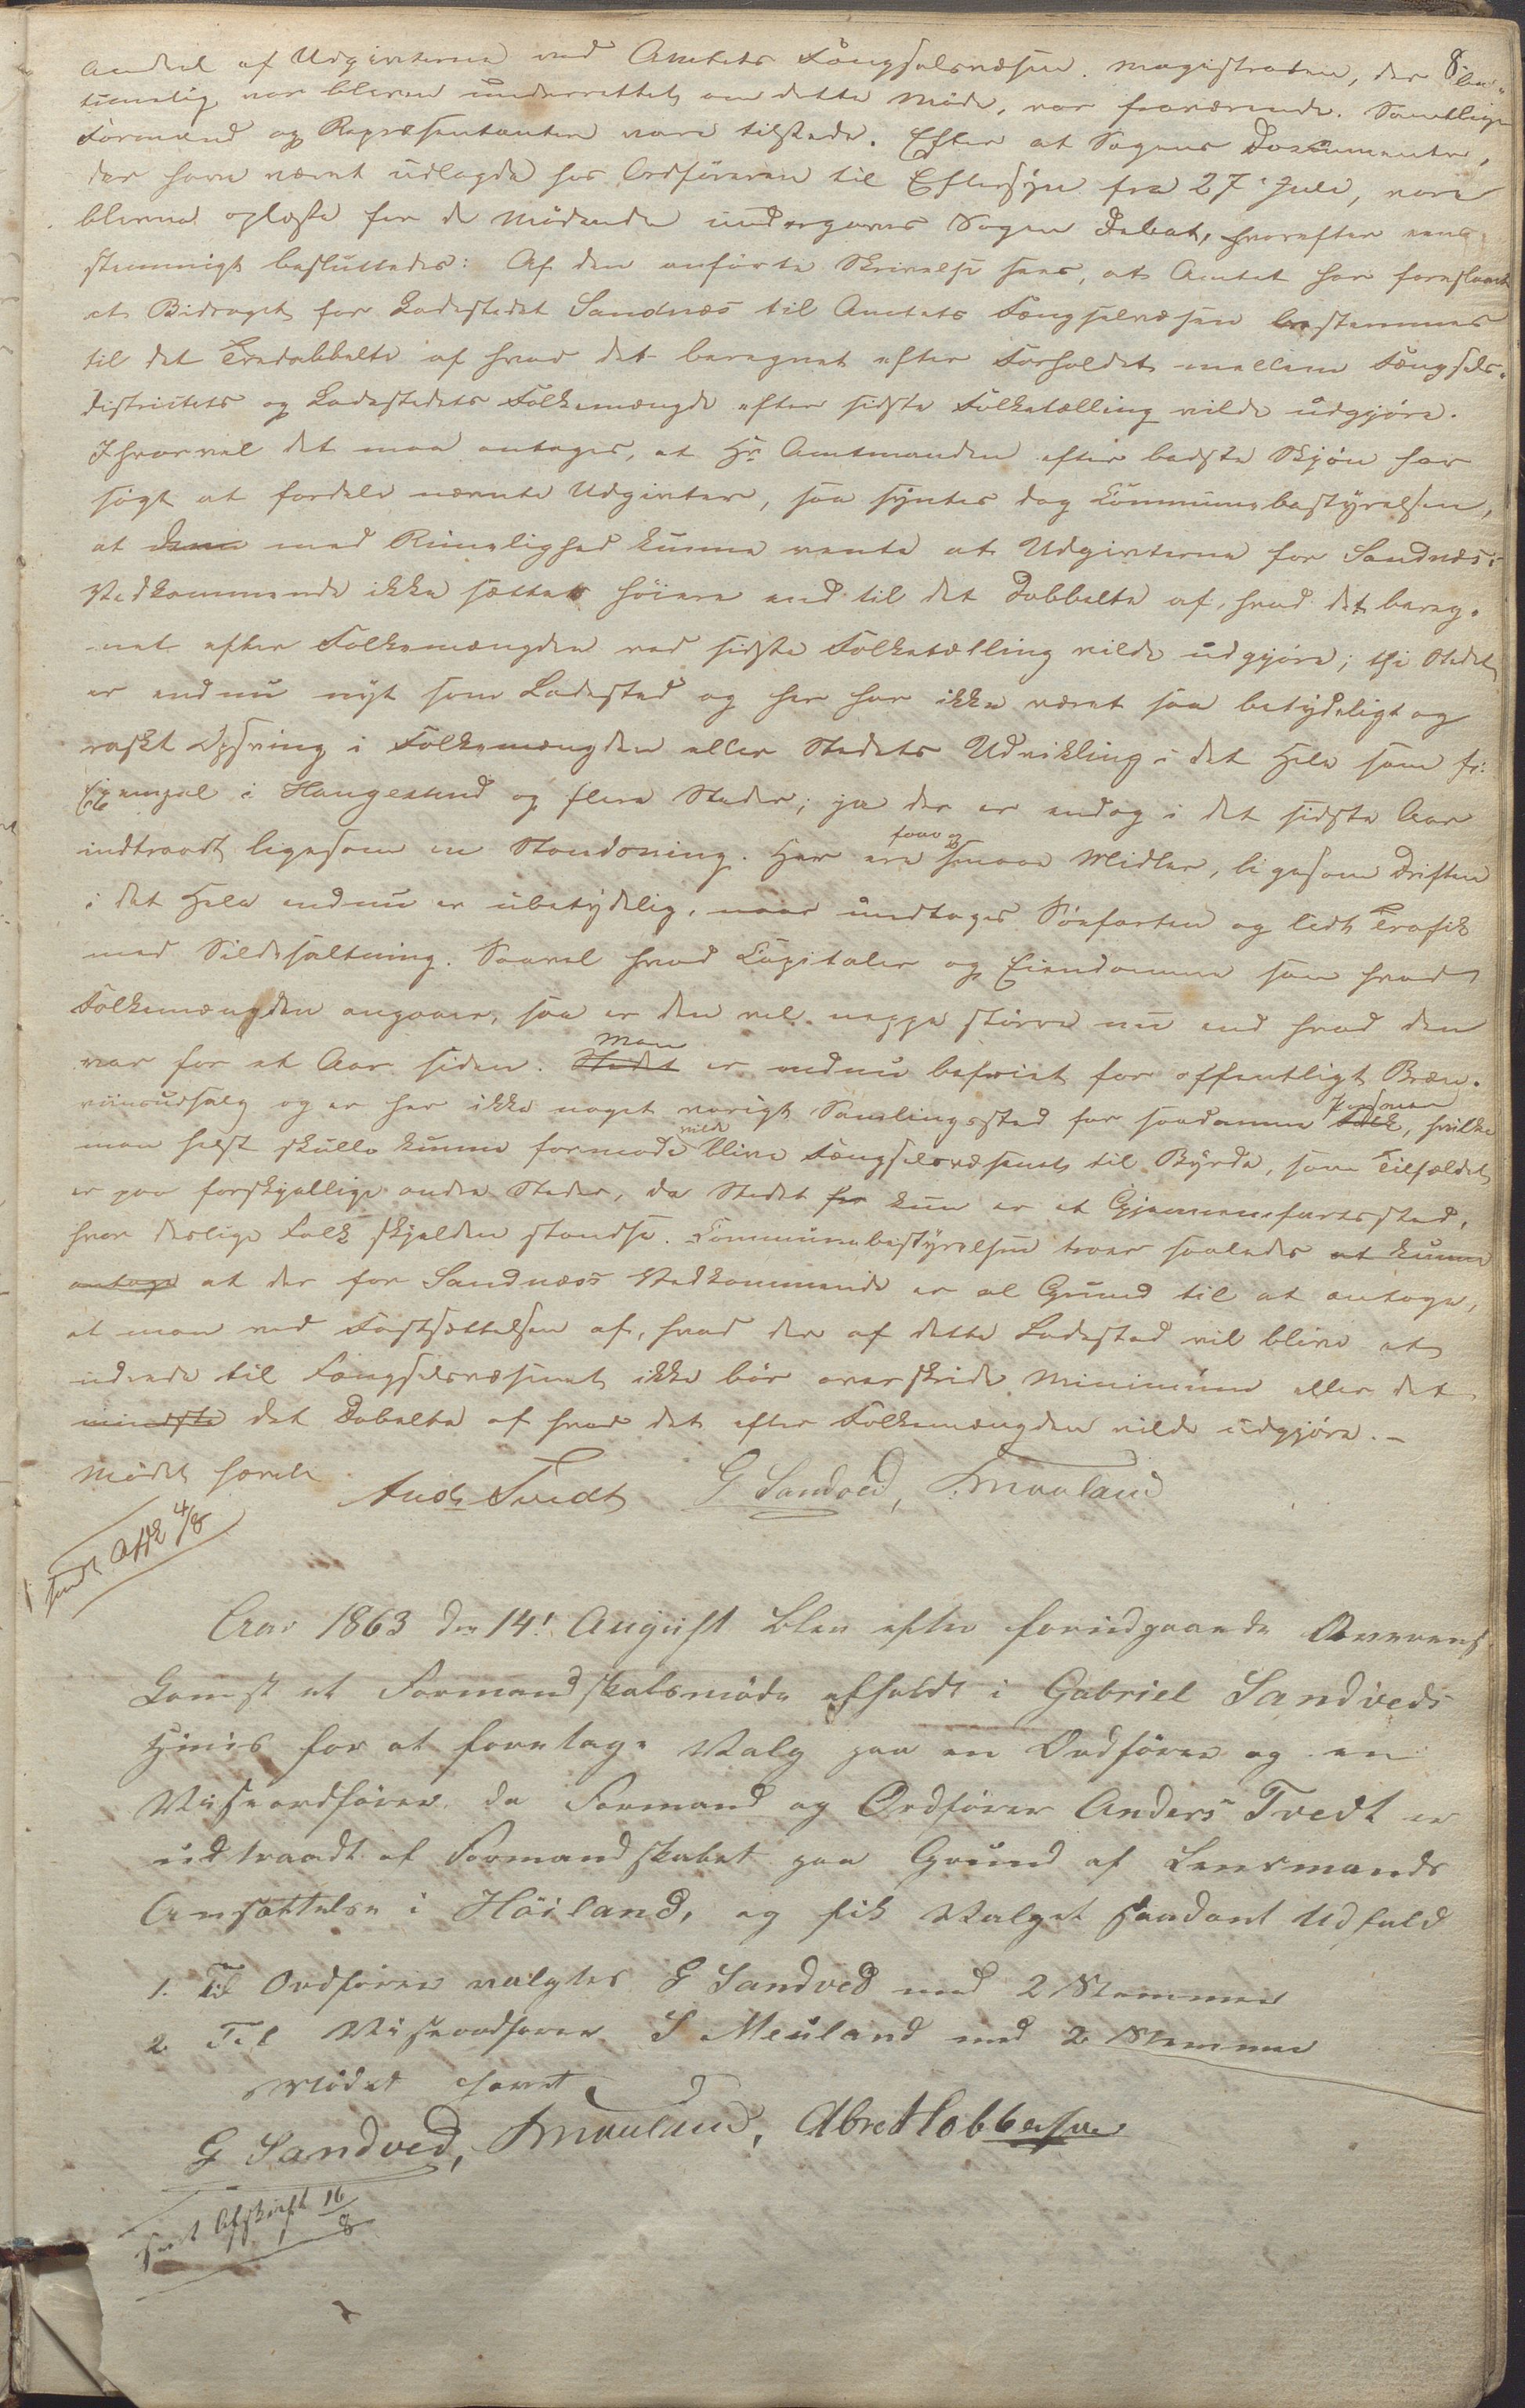 8
Andeel af Udgivterne ved Amtets Fængselsvæsen. Magistraten, der
timelig var bleven underrettet om dette Møde, var fraværende. Samtlige
Formænd og Repræsentanter vare tilstede. Efter at Sagens Documenter,
der have været udlagde hos Ordføreren til Eftersyn fra 27 Juli, vare
blevne oplæste for de Mødende undergaves Sagen Debat, hvorefter eens-
stemmigt besluttedes: Af den anførte Skrivelse sees, at Amtet har foreslaaet
at Bidraget for Ladestedet Sandnæs til Amtets Fængselvæsen bestemmes
til det Tredobbelte af hvad det beregnet efter Forholdet mellem Fængsels-
districtets og Ladestedets Folkemængde efter sidste Folketælling vilde udgjøre.
Ihvorvel det maa antages, at Hr Amtmanden efter bedste Skjøn har
søgt at fordele nævnte Udgivter, saa syntes dog Communebestyrelsen,
at denne med Rimelighed kunne vente at Udgivterne for Sandnæs's
Vedkommende ikke sættes høiere end til det Dobbelte af, hvad det bereg-
net efter Folkemængden ved sidste Folketælling vilde udgjøre; thi Stedet
er endnu nyt som Ladested og her har ikke været saa betydeligt og
raskt Opsving i Folkemængden eller Stedets Udvikling i det Hele som f:
Exempel i Haugesund og flere Steder; ja der er endog i det sidste Aar
indtraadt ligesom en Standsning. Her ere faae og smaae Midler, ligesom Driften
i det Hele endnu er ubetydelig, naar undtages Søefarten og lidt Trafik
med Sildesaltning. Saavel hvad Capitaler og Eiendomme som hvad
Folkemængden angaaer, saa er den vel neppe større nu end hvad den
var for et Aar siden. Stedet Man er endnu befriet for offentligt Bræn-
viinsudsalg og er her ikke noget varigt Samlingssted for saadanne Folk Personer, hvilke
man helst skulle kunne formode vilde blive Fængselsvæsenet til Byrde, som Tilfældet
er paa forskjellige andre Steder, da Stedet for kun er et Gjennemfartssted,
hvor deslige Folk sjelden standse. Communebestyrelsen troer saaledes at kunne
antage at der for Sandnæs's Vedkommende er al Grund til at antage,
at man ved Fastsættelsen af, hvad der af dette Ladested vil blive at
udrede til Fængselsvæsenet ikke bør overskride Minimum eller det
mindste det Dobelte af hvad det efter Folkemængden vilde udgjøre. –
Mødet hævet
Ands Tvedt G Sandved, S Meuland
sendt Afsk 4/8
Aar 1863 den 14! August blev efter foriudgaaende Overens-
komst et Formandskabsmøde afholdt i Gabriel Sandveds
Huus for at foretage Valg paa en Ordfører og en
Viseordfører, da Formand og Ordfører Anders Tvedt er
udtraadt af Formandskabet paa Grund af Lensmands
Ansættelse i Høiland, og fik Valget saadant Udfald
1. Til Ordfører valgtes G Sandved med 2 Stemmer
2 Til Viseordfører S Meuland med 2 Stemmer
Mødet hævet
G Sandved, S Meuland,
sendt Afskrift 16/8